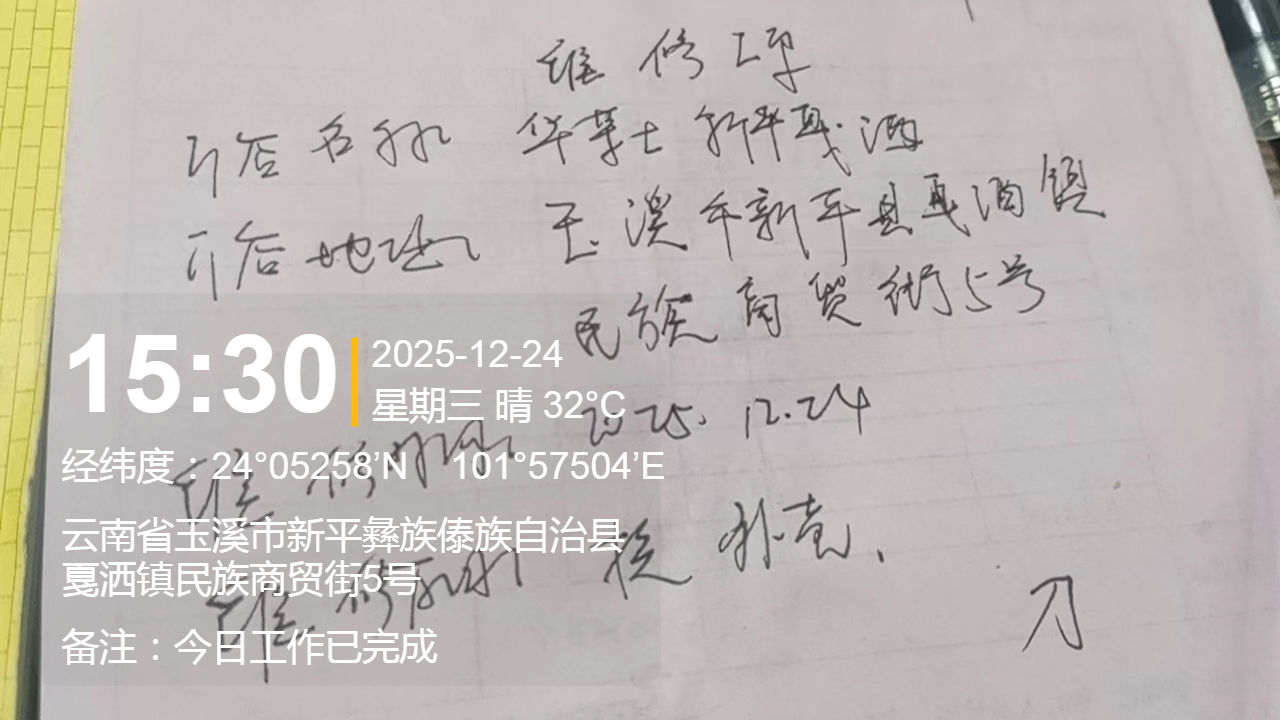 维修单
门店名称 华莱士新平戛洒
门店地址 玉溪市新平县戛洒镇
民族商贸街5号
15:30
2025-12-24
星期三 晴 32°C
2025.12.24
经纬度：24°05258’N 101°57504’E
维修
云南省玉溪市新平彝族傣族自治县
戛洒镇民族商贸街5号
维修 换 外壳.
备注：今日工作已完成